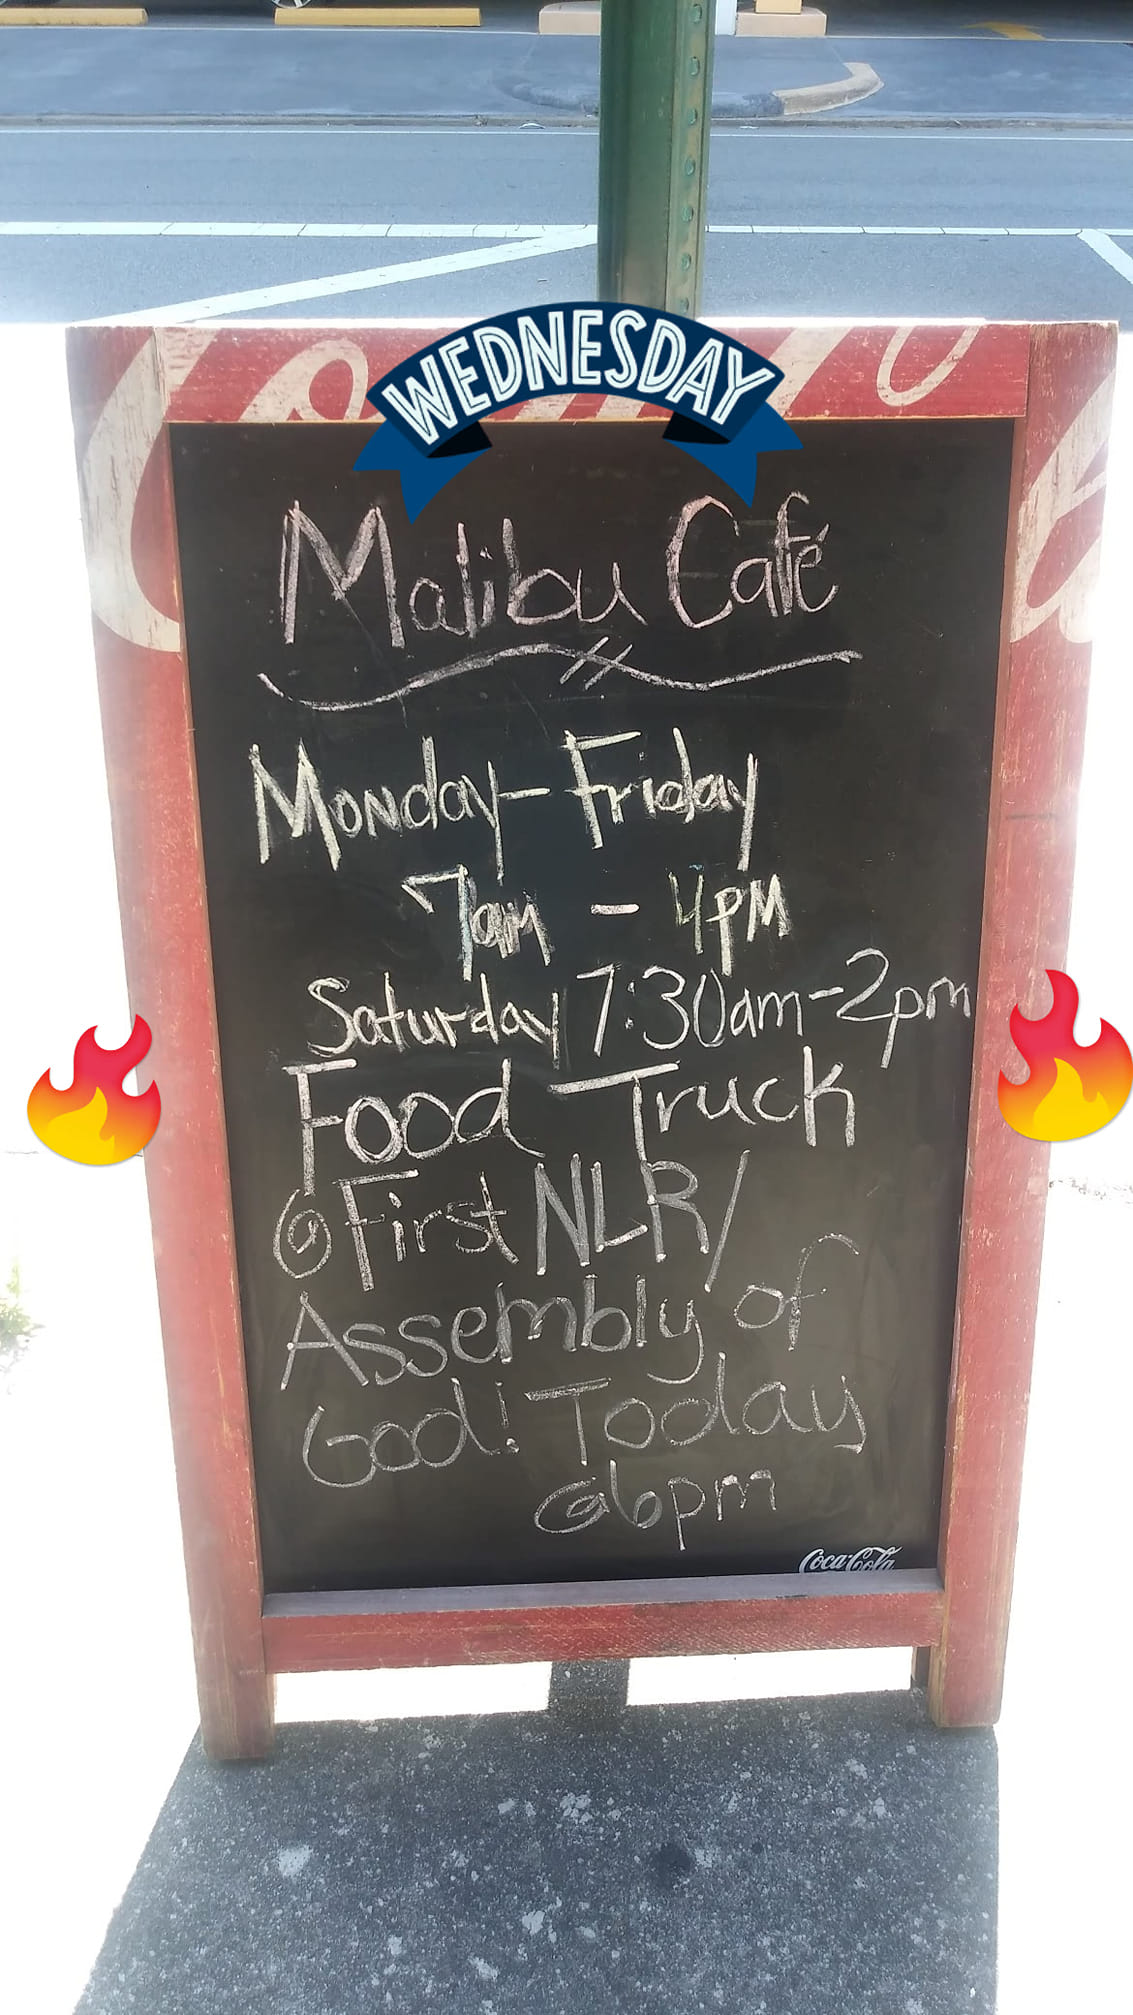 WEDNESDAY
Malibu Café
Monday-Friday
7am - 4PM
Saturday 7:30am-2pm
Food Truck
@First NLR/
Assembly of
God! Today
@6pm
Coca-Cola